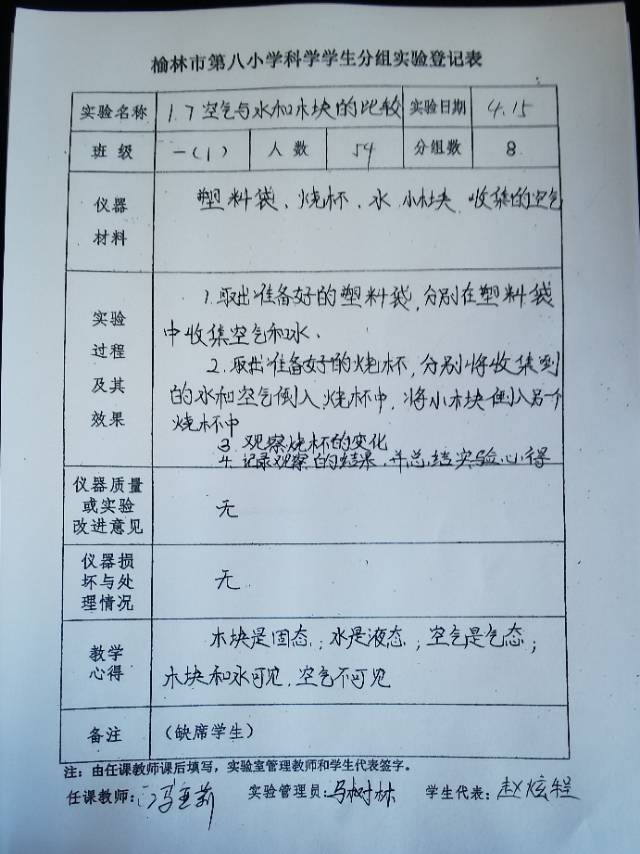 榆林市第八小学科学学生分组实验登记表
实验名称 1.7空气与水和木块的比较 实验日期 4.15
班级 一(1) 人数 54 分组数 8
仪器
材料
塑料袋、烧杯、水、小木块、收集的空气
实验
过程
及其
效果
1.取出准备好的塑料袋,分别在塑料袋
中收集空气和水.
2.取出准备好的烧杯,分别将收集到
的水和空气倒入烧杯中,将小木块倒入另个
烧杯中
3.观察烧杯的变化
4.记录观察的结果,并总结实验心得
仪器质量
或实验
改进意见
无
仪器损
坏与处
理情况
无
教学
心得
木块是固态;水是液态;空气是气态;
木块和水可见.空气不可见
备注 (缺席学生)
注:由任课教师课后填写,实验室管理教师和学生代表签字。
任课教师: 实验管理员:马树林 学生代表:赵炫程